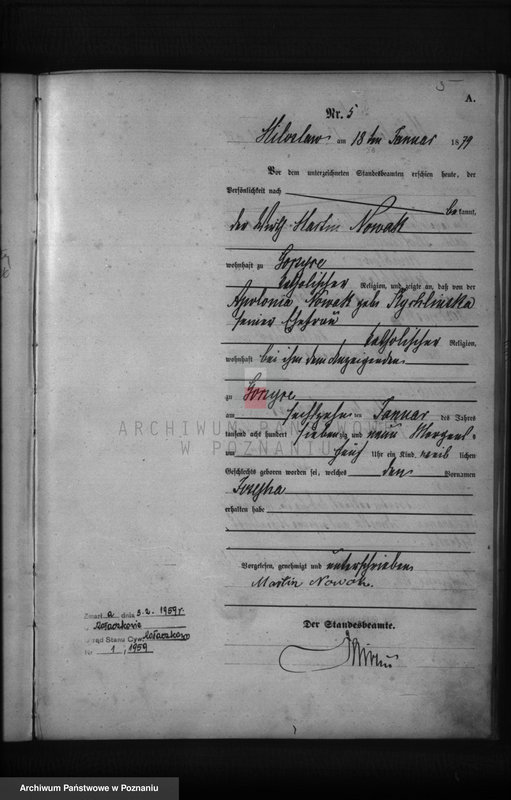 5
A.
Nr. 5
Miloslaw am 18 ten Januar 1879
Vor dem unterzeichneten Standesbeamten erschien heute, der
Persönlichkeit nach
be kannt,
der Wirth Martin Nowak
wohnhaft zu
katholischer Religion, und zeigte an, daß von der
Apolonia Nowak geb.
seiner Ehefrau
katholischer Religion,
wohnhaft bei ihm dem Anzeigenden
zu
am sechszehn ten Januar des Jahres
tausend acht hundert sieben zig und neun Morgens
um fünf Uhr ein Kind weib lichen
Geschlechts geboren worden sei, welches den Vornamen
erhalten habe
Vorgelesen, genehmigt und unterschrieben
Martin Nowak.
Der Standesbeamte.
Zmarł a dnia 3.2. 1959 r.
Urząd Stanu Cyw.
Nr 1 / 1959
ARCHIWUM PAŃSTWOWE
W POZNANIU
Archiwum Państwowe w Poznaniu